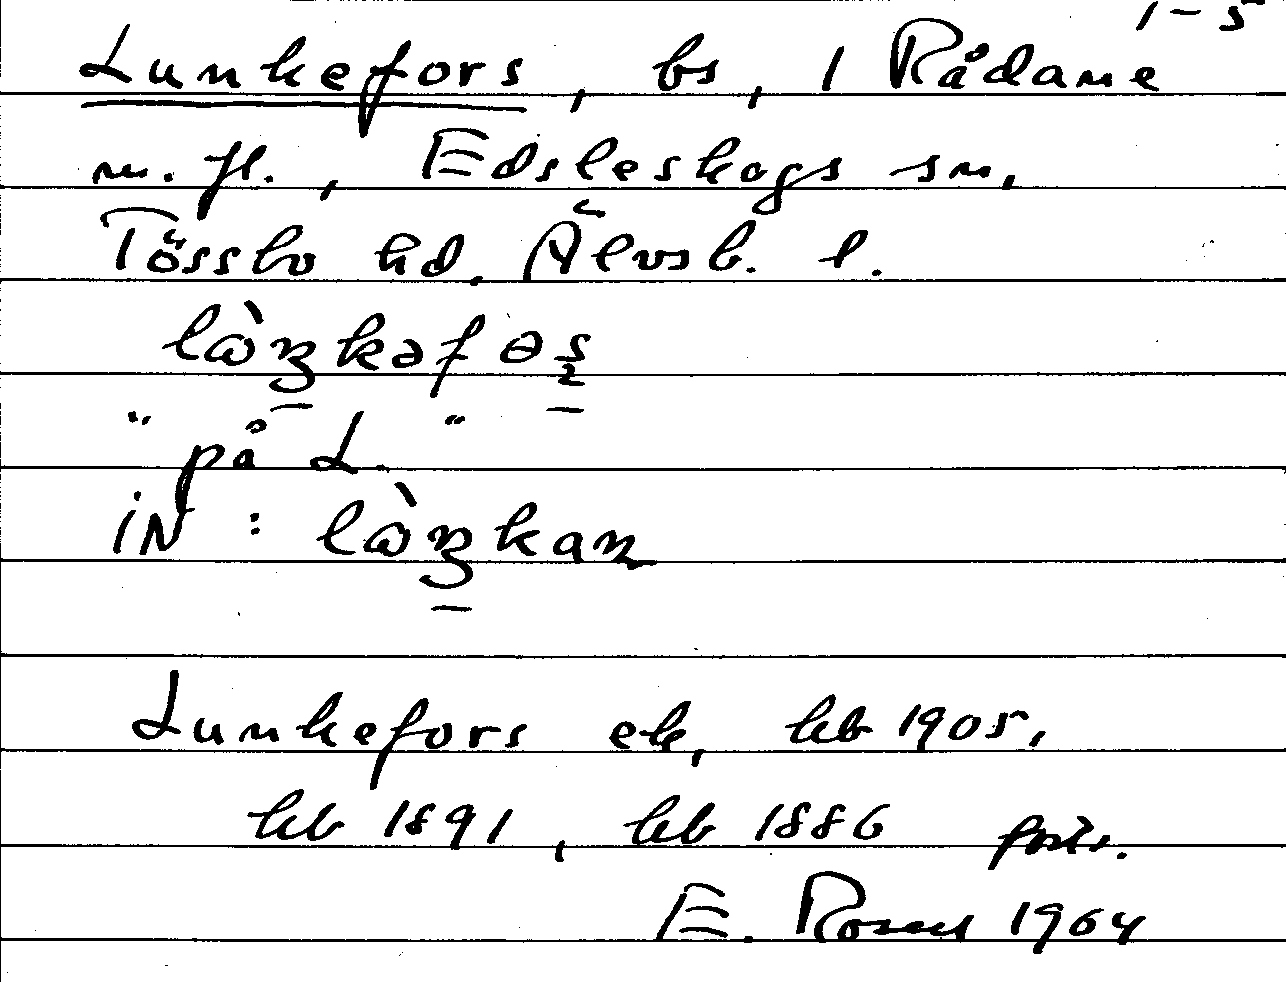 1-5
Lunkefors, bs, 1 Rådane
m. fl., Edsleskogs sn,
Tössbo hd. Älvsb. l.
lὼŋkəfɵʂ
" på L. "
iN : lὼŋkan
Lunkefors ek, kb 1905,
kb 1891, kb 1886 forts.
E. 1964